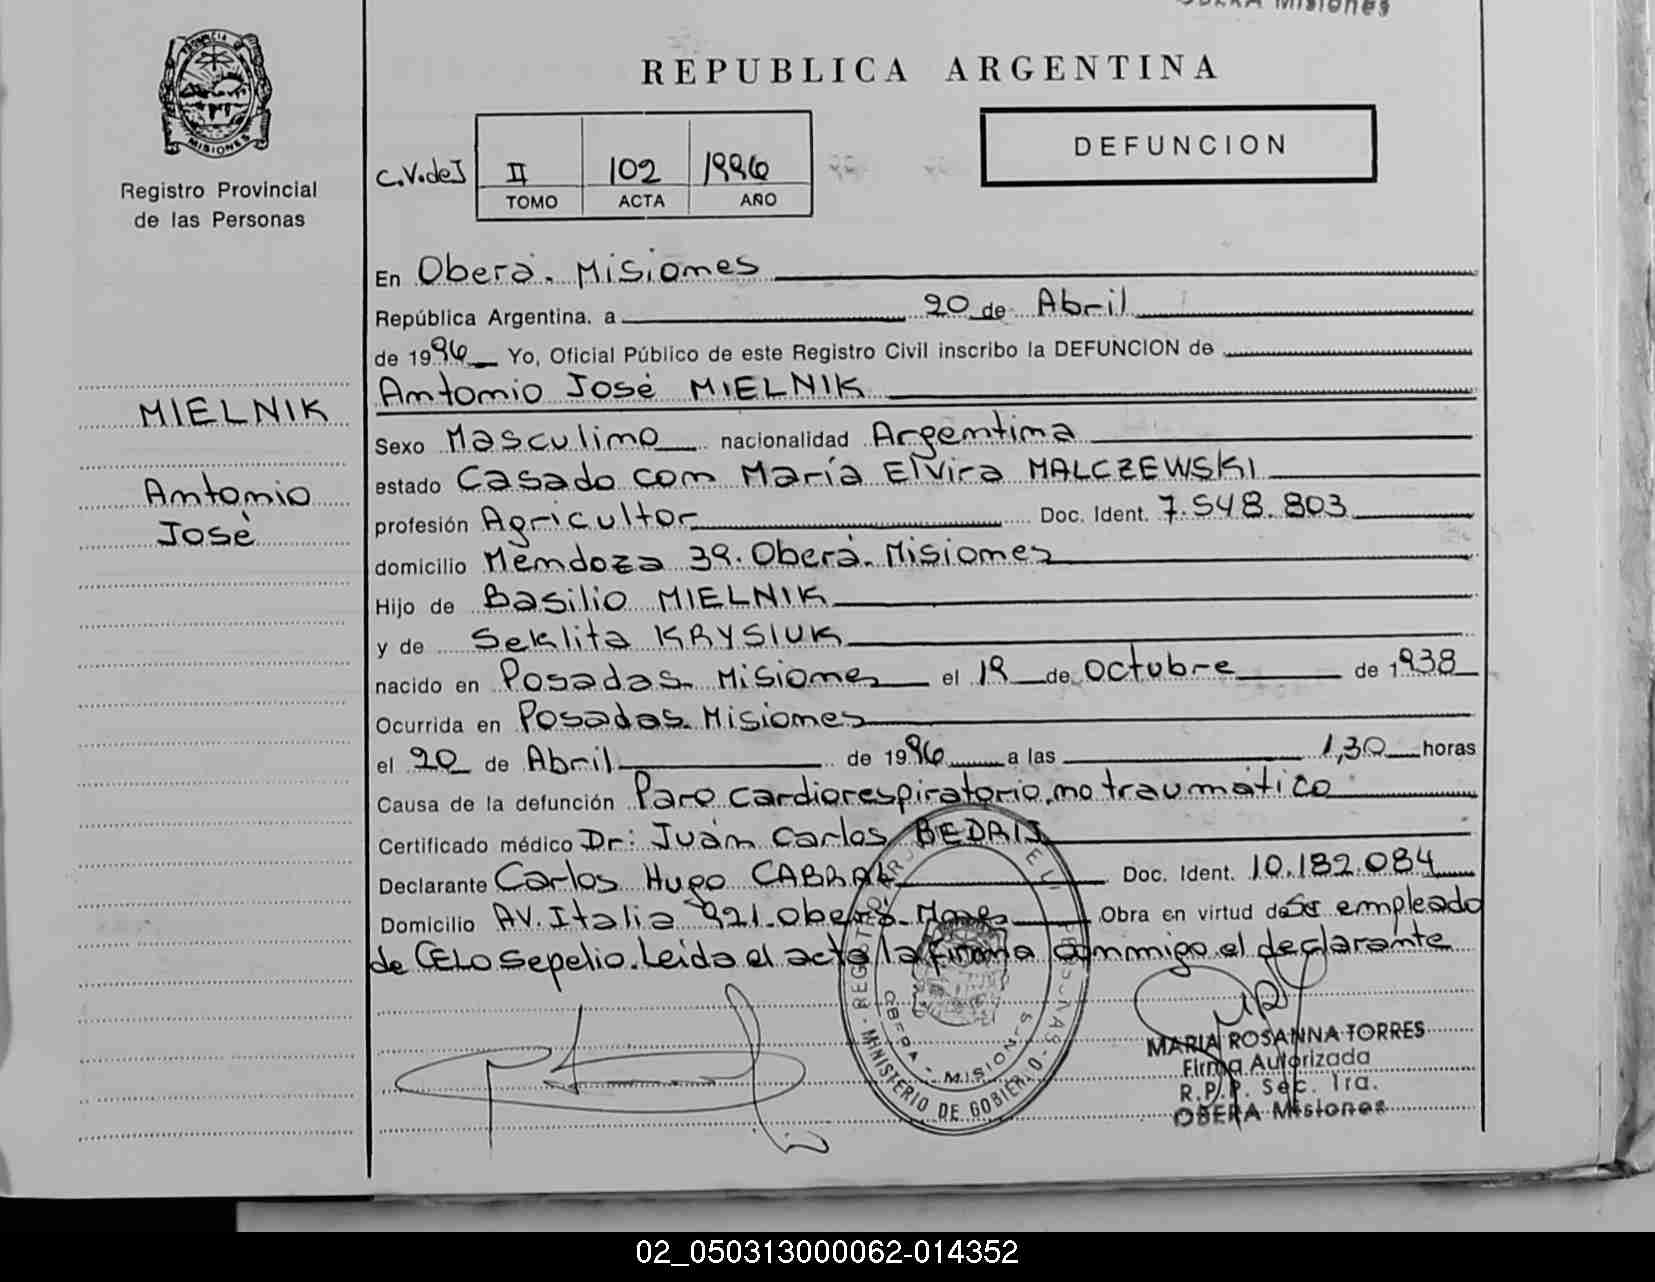 OBERA Misiones
PROVINCIA DE
MISIONES
Registro Provincial
de las Personas
REPUBLICA ARGENTINA
DEFUNCION
C.V.deJ II 102 1996
TOMO ACTA AÑO
En Oberá. Misiones
República Argentina. a 20 de Abril
de 1996 Yo, Oficial Público de este Registro Civil inscribo la DEFUNCION de
Antonio José MIELNIK
MIELNIK
Antonio
José
Sexo Masculino nacionalidad Argentina
estado Casado con María Elvira MALCZEWSKI
profesión Agricultor Doc. Ident. 7.548.803
domicilio Mendoza 39. Oberá. Misiones
Hijo de Basilio MIELNIK
y de Seklita KRYSIUK
nacido en Posadas. Misiones el 19 de octubre de 1938
Ocurrida en Posadas. Misiones
el 20 de Abril de 1996 a las 1,30 horas
Causa de la defunción Paro cardiorespiratorio, no traumático
Certificado médico Dr: Juan Carlos BEDRIJ
Declarante Carlos Hugo CABRAL Doc. Ident. 10.182.084
Domicilio AV. Italia 921. Oberá. Mnes Obra en virtud de Ser empleado
de CELO sepelio. Leida el acta la firma conmigo el declarante
MINISTERIO DE GOBIERNO
OBERA - MISIONES
MARIA ROSANNA TORRES
Firma Autorizada
R.P.P. Sec. 1ra.
OBERA Misiones
02_050313000062-014352